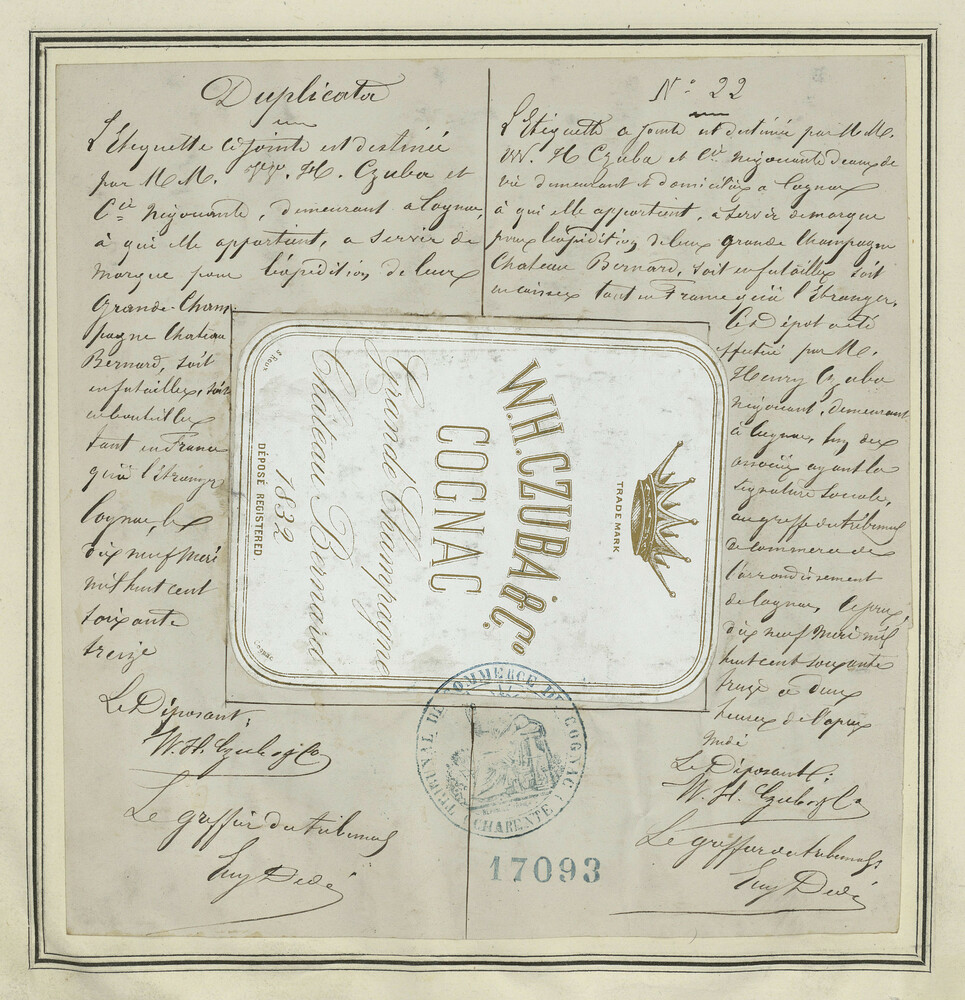 Duplicata
L'Etiquette ci jointe est destinée
par M M. W. H. Czuba et
Cie Négociants, demeurant a Cognac,
à qui elle appartient, a servir de
marque pour l'expédition de leur
Grande Cham
pagne Chateau
Bernard, soit
en futailles, soit
en bouteilles
tant en France
qu'à l'étranger
Cognac, le
dix neuf Mai
mil huit cent
soixante
treize
Le Déposant;
W. H. Czuba & Co
Le greffier du tribunal
Eug Dedé
No 22
L'Etiquette ci jointe est destinée par M M.
W. H Czuba et Cie négociants d'eaux de
vie demeurant et domiciliés a Cognac
à qui elle appartient, a servir de marque
pour l'expédition de leur grande Champagne
Chateau Bernard, soit en futailles soit
en caisses tant en France qu'à l'étranger,
Ce Dépot a été
effectué par M.
Henry Czuba
négociant, demeurant
à Cognac, l'un des
associés ayant la
signature sociale,
au greffe du tribunal
de commerce de
l'arrondissement
de Cognac, le
dix neuf Mai mil
huit cent soixante
treize à deux
heures de l'après
midi
Le Déposant;
W. H. Czuba & Co
Le greffier du tribunal;
Eug Dedé
TRADE MARK
W.H. CZUBA & Co.
COGNAC
Grande Champagne
Chateau Bernard
1832
DÉPOSÉ REGISTERED.
Cognac
TRIBUNAL DE COMMERCE DE COGNAC
(CHARENTE)
17093